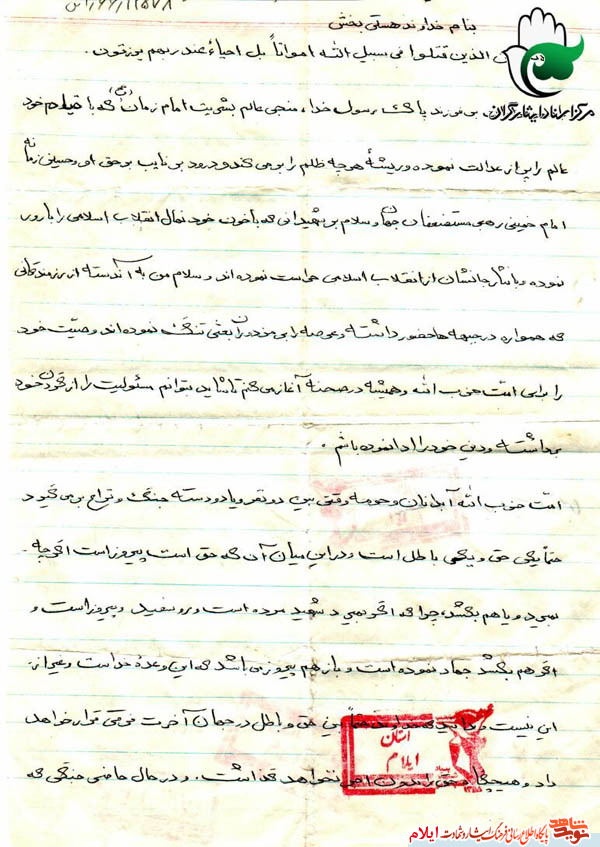 بنام خداوند هستی بخش
الذین قتلوا فی سبیل الله امواتاً بل احیاء عند ربهم یرزقون.
مرکز اسناد ایثارگران
بر فرزند پاک رسول خدا، منجی عالم بشریت امام زمان (عج) که با قیام خود
عالم را پر از عدالت نموده و ریشهٔ هرچه ظلم را بر می کند و درود بر نایب بر حق او و حسین زمانه
امام خمینی رهبر مستضعفان جهان و سلام بر شهیدانی که با خون خود نهال انقلاب اسلامی را بارور
نموده و با نثار جانشان از انقلاب اسلامی حراست نموده اند و سلام من به آندسته از رزمندگانی
که همواره در جبهه ها حضور داشته و عرصه را بر مزدوران بعثی تنگ نموده اند وصیّت خود
را برای امت حزب الله و همیشه در صحنه آغاز می کنم تا شاید بتوانم مسئولیت را از گردن خود
برداشته و دین خود را ادا نموده باشم.
امّت حزب الله آبدانان و حومه وقتی بین دو نفر و یا دو دسته جنگ و نزاع بر می گیرد
حتماً یکی حق و یکی باطل است و در این میان آن که حق است پیروز است اگر چه
بمیرد و یا هم بکشد، چرا که اگر بمیرد شهید مرده است و رو سفید و پیروز است و
اگر هم بکشد جهاد نموده است و باز هم پیروز می باشد که این وعدهٔ خداست و غیر از
این نیست و بین حق و باطل در جهان آخرت فرقی قرار خواهد
داد و هیچگاه حق را بدون اجر نخواهد گذاشت. و در حال حاضر جنگی که
استان
ایلام
نوید شاهد
پایگاه اطلاع رسانی فرهنگ ایثار و شهادت ایلام